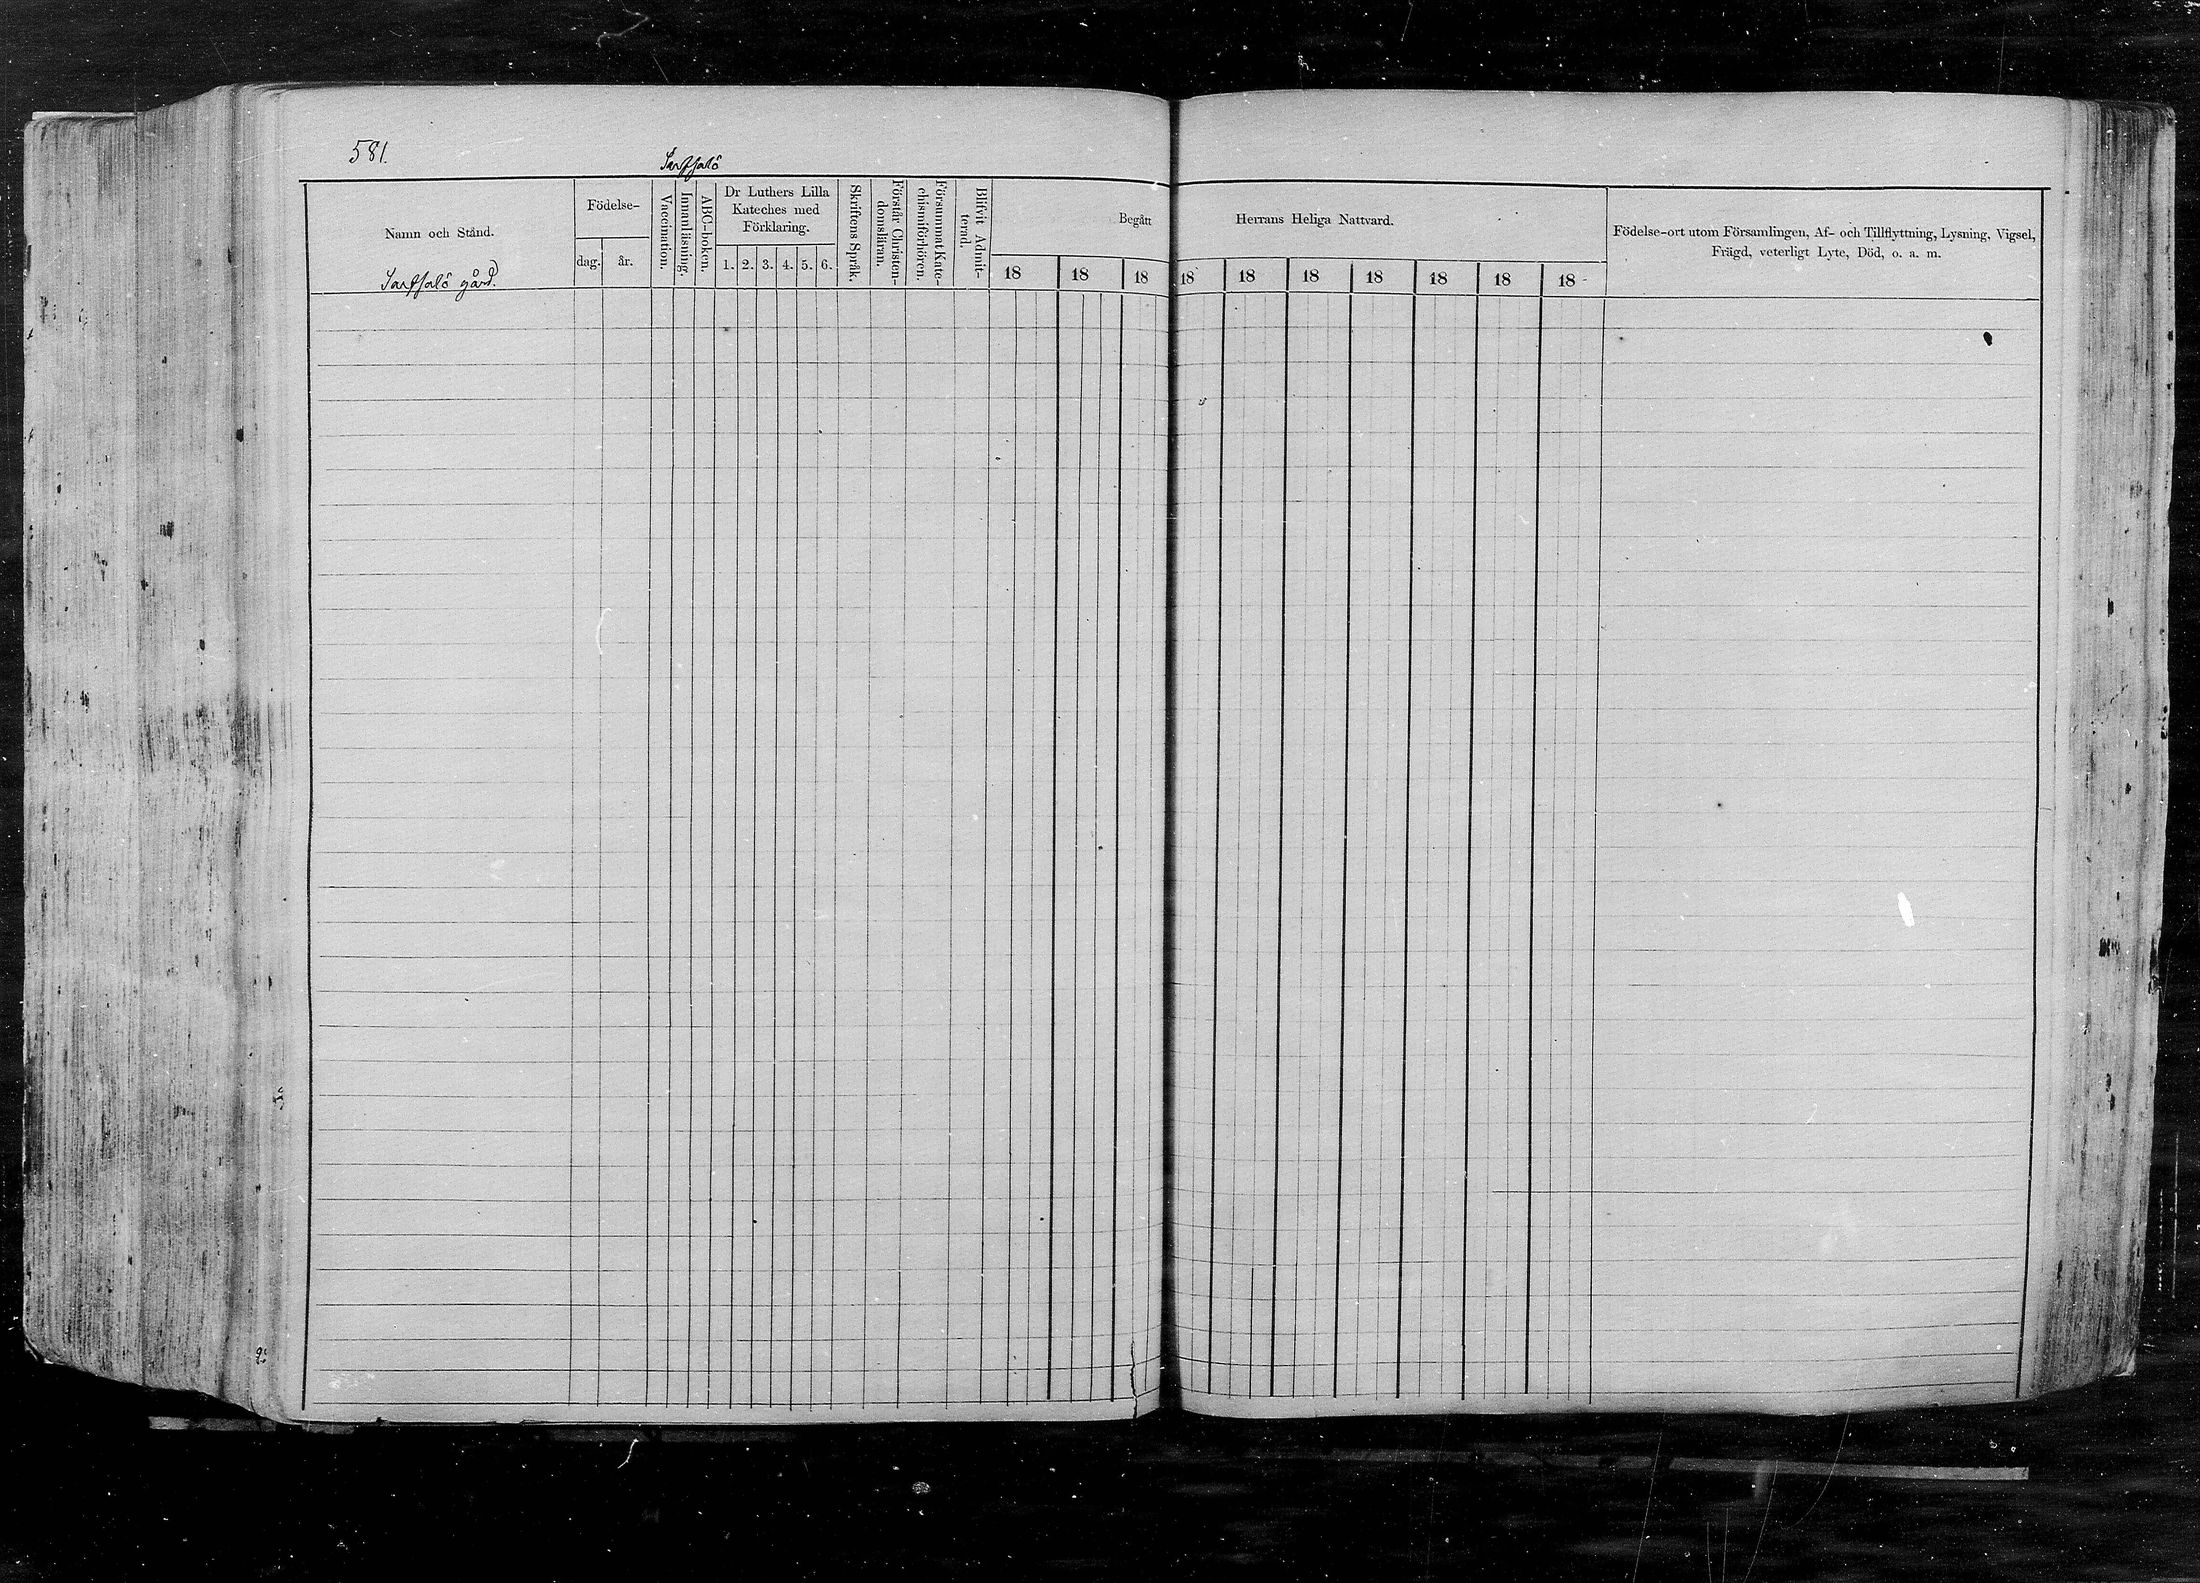 581.
Sarfsalö
Namn och Stånd.
Sarfsalö gård.
Födelse-
dag.
år.
Vaccination.
Innanläsning.
ABC-boken.
Dr Luthers Lilla
Kateches med
Förklaring.
1. 2. 3. 4. 5. 6.
Skriftens Språk.
Förstår Christen-
domsläran.
Försummat Kate-
chismiförhören.
Blifvit Admit-
terad.
Begått Herrans Heliga Nattvard.
18 18 18 18 18 18 18 18 18 18
Födelse-ort utom Församlingen, Af- och Tillflyttning, Lysning, Vigsel,
Frägd, veterligt Lyte, Död, o. a. m.